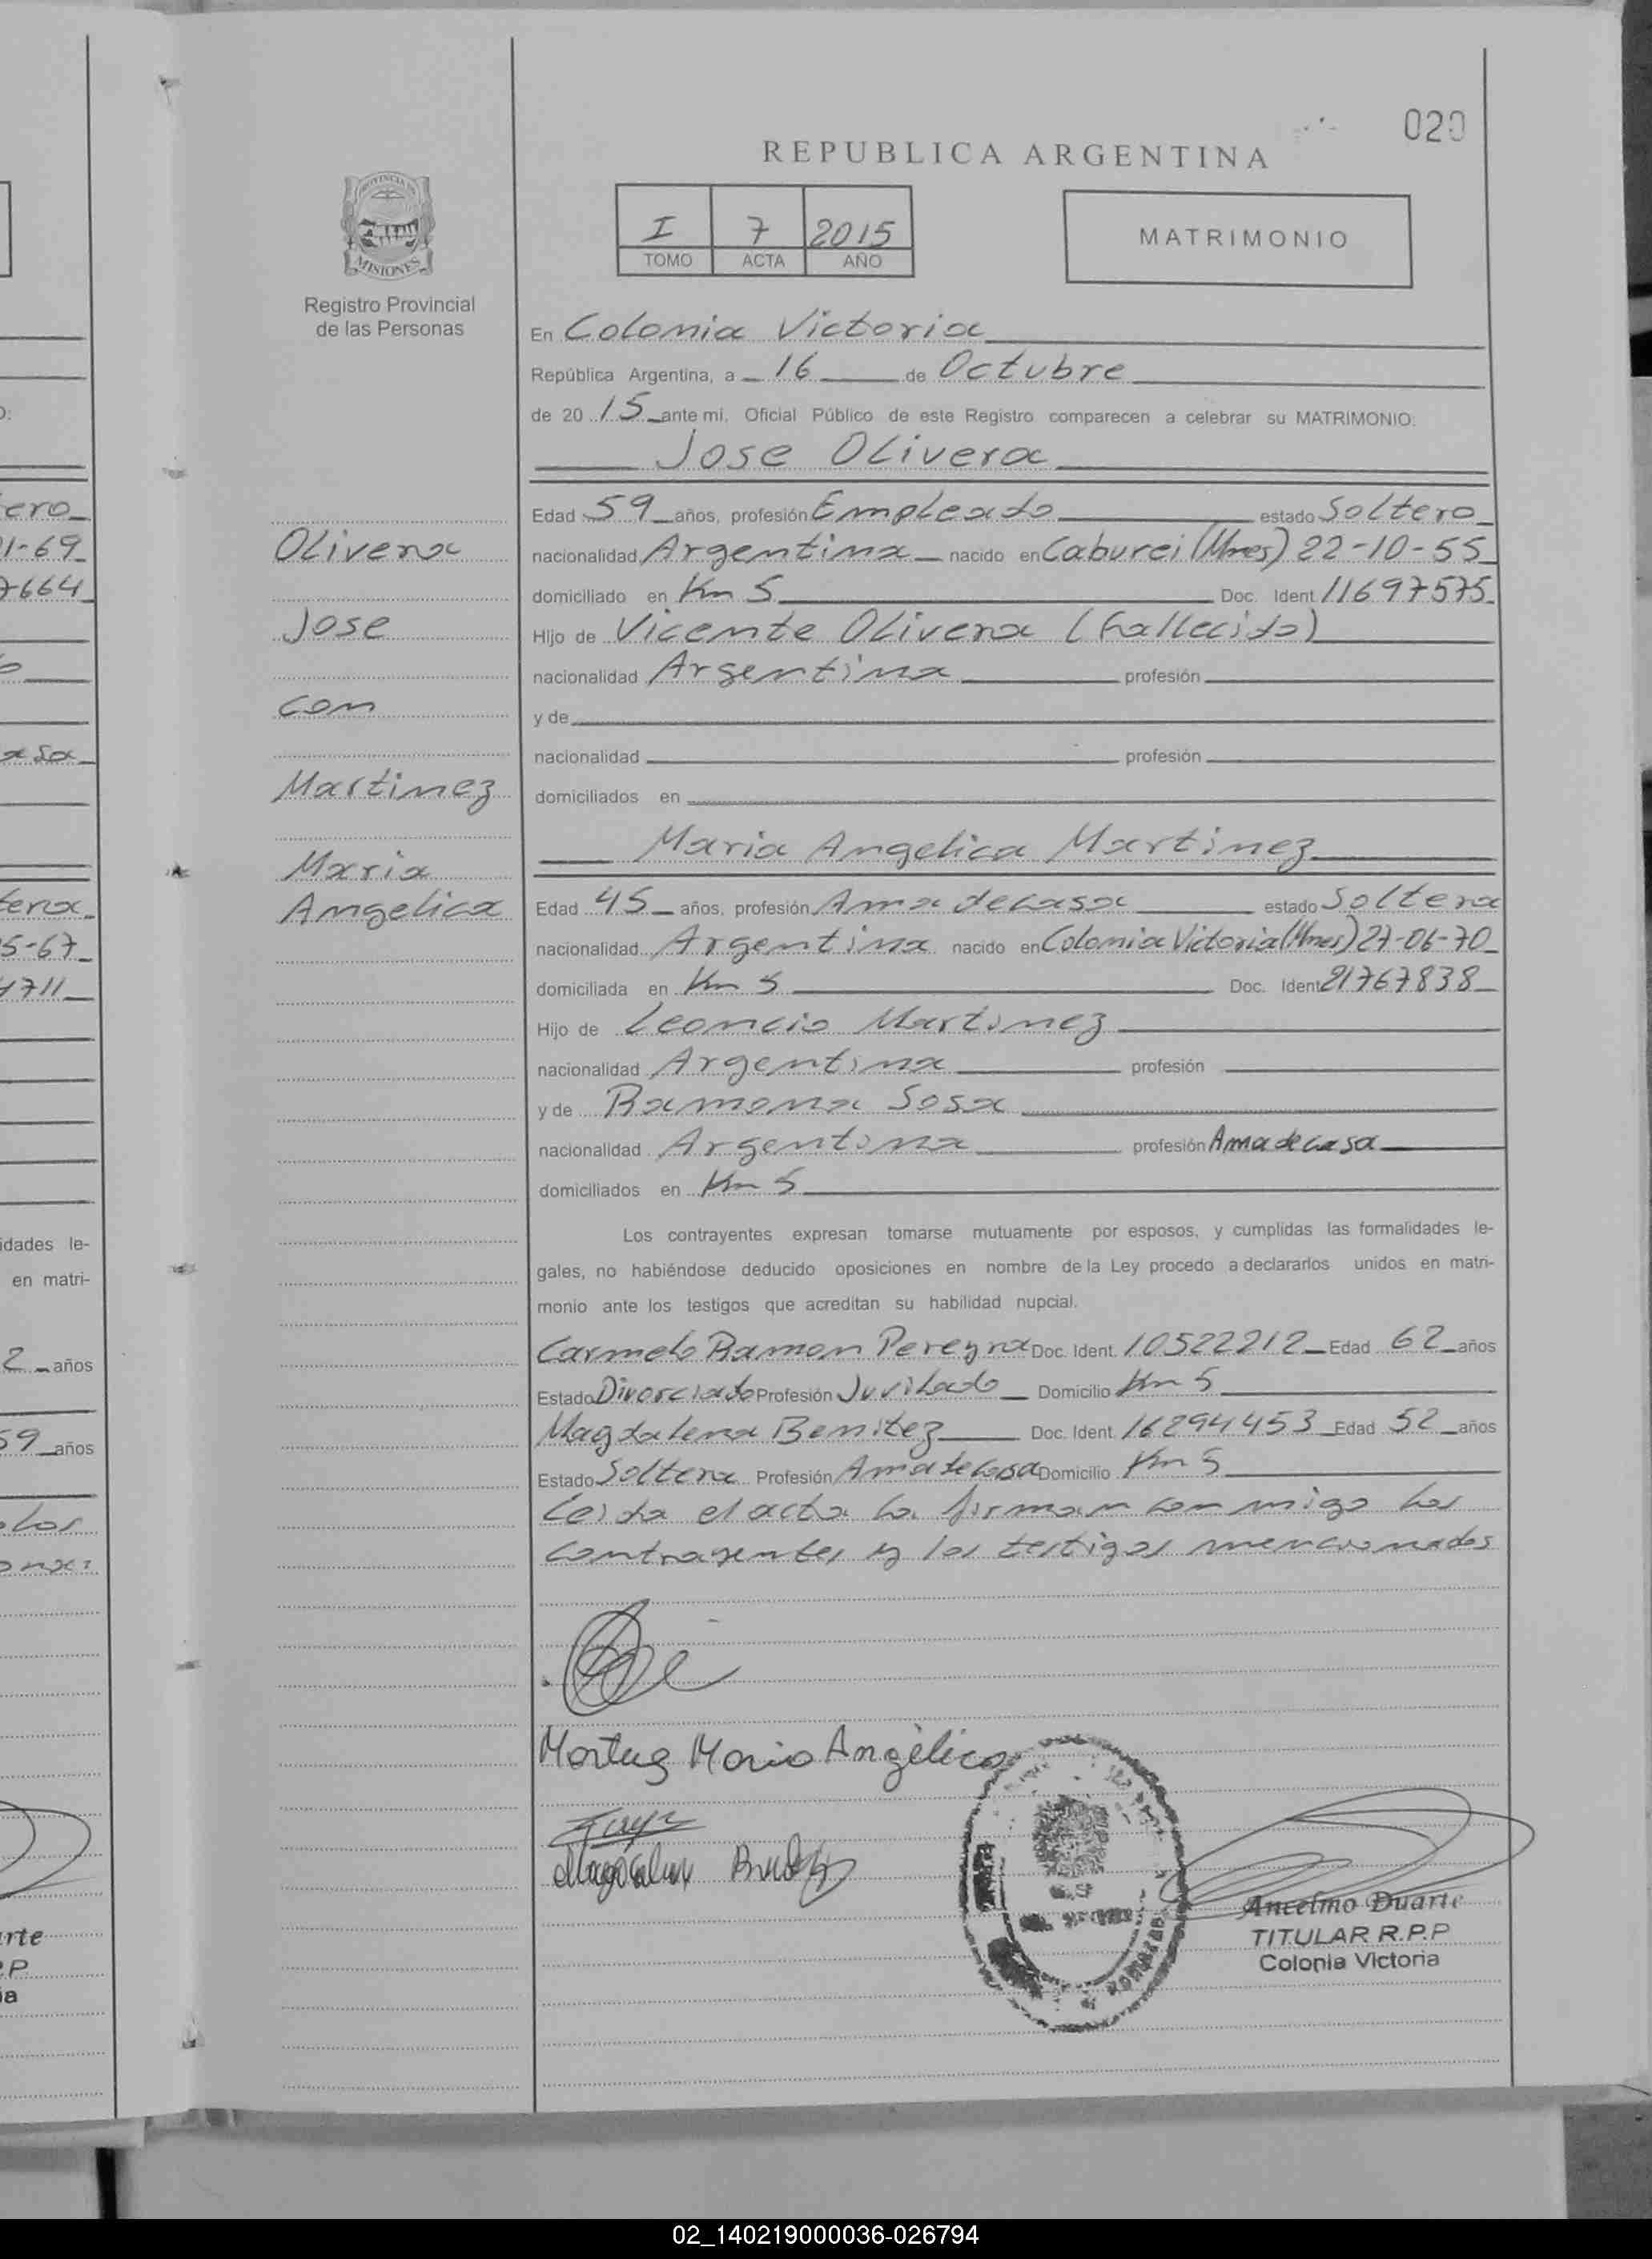 020
REPUBLICA ARGENTINA
I 7 2015
TOMO ACTA AÑO
MATRIMONIO
PROVINCIA DE
MISIONES
Registro Provincial
de las Personas
En Colonia Victoria
República Argentina, a 16 de Octubre
de 20 15 ante mi, Oficial Público de este Registro comparecen a celebrar su MATRIMONIO:
Jose Olivera
Edad 59 años, profesión Empleado estado Soltero
Olivera
nacionalidad Argentina nacido en Caburei (Mnes) 22-10-55
domiciliado en Km 5 Doc. Ident 11697575
Jose
Hijo de Vicente Olivera (Fallecido)
nacionalidad Argentina profesión
con
y de
nacionalidad profesión
Martinez
domiciliados en
Maria Angelica Martinez
Maria
Angelica
Edad 45 años, profesión Ama de casa estado Soltera
nacionalidad Argentina nacido en Colonia Victoria (Mnes) 27-06-70
domiciliada en Km 5 Doc. Ident 21767838
Hijo de Leoncio Martinez
nacionalidad Argentina profesión
y de Ramona Sosa
nacionalidad Argentina profesión Ama de casa
domiciliados en Km 5
Los contrayentes expresan tomarse mutuamente por esposos, y cumplidas las formalidades le-
gales, no habiéndose deducido oposiciones en nombre de la Ley procedo a declararlos unidos en matri-
monio ante los testigos que acreditan su habilidad nupcial.
Carmelo Ramon Pereyra Doc. Ident. 10522212 Edad 62 años
Estado Divorciado Profesión Juvilado Domicilio Km 5
Magdalena Benitez Doc. Ident. 16294453 Edad 52 años
Estado Soltera Profesión Ama de casa Domicilio Km 5
Leida el acta la firman con migo los
contrayentes y los testigos mencionados
Maria Angélica
Ancelmo Duarte
TITULAR R.P.P
Colonia Victoria
ero
1-69
7664
asa
tera
5-67
1711
idades le-
en matri-
2 años
59 años
rte
.P
ia
02_140219000036-026794